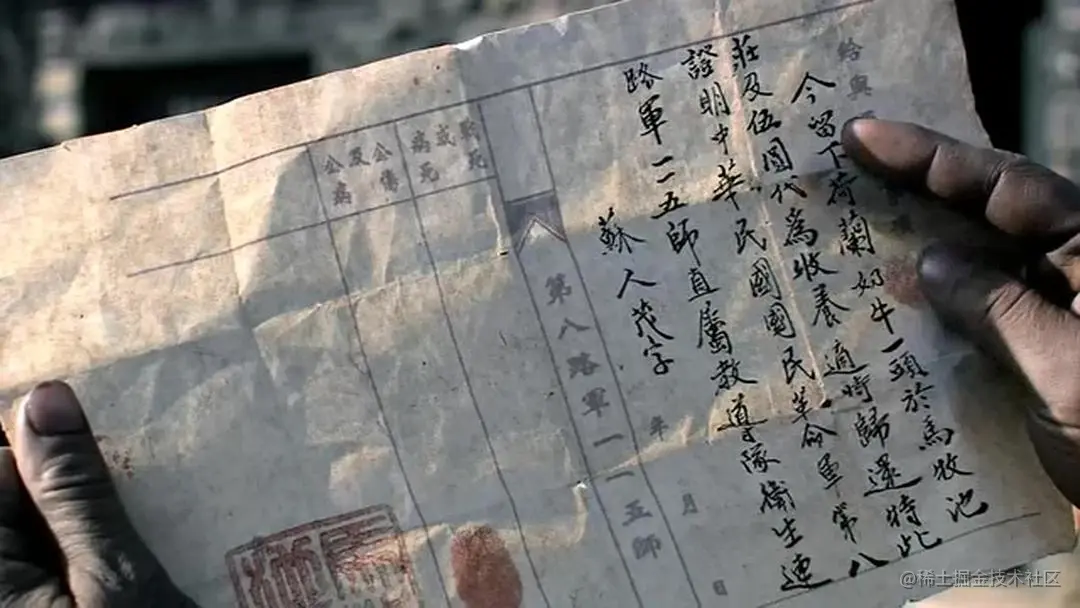 給與
今留下荷蘭奶牛一頭於馬牧池
莊及伍圓代為收養適時歸還特此
證明中華民國國民革命軍第八
路軍一一五師直屬教導隊衛生連
蘇人茂字
年月日
第八路軍一一五師
戰死
或
病死
公傷
及
公病
@稀土掘金技术社区